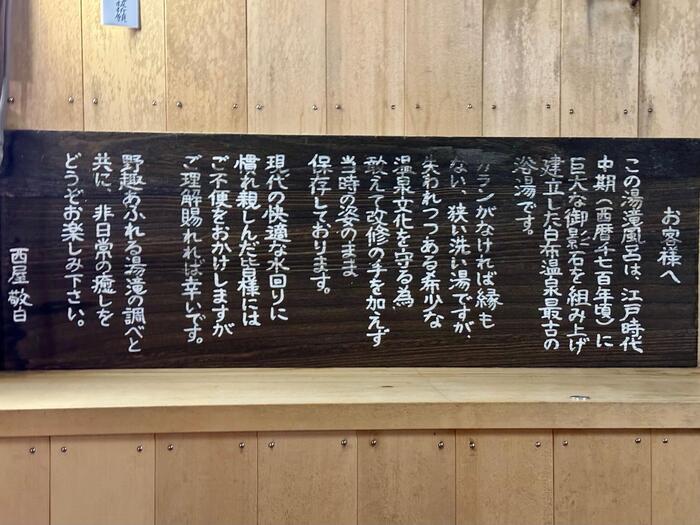 お客様へ
この湯滝風呂は、江戸時代
中期（西暦千七百年頃）に
巨大な御影石を組み上げ
建立した白布温泉最古の
浴湯です。
カランがなければ縁も
ない、狭い洗い湯ですが、
失われつつある希少な
温泉文化を守る為、
敢えて改修の手を加えず
当時の姿のまま
保存しております。
現代の快適な水回りに
慣れ親しんだ皆様には
ご不便をおかけしますが
ご理解賜れれば幸いです。
野趣あふれる湯滝の調べと
共に、非日常の癒しを
どうぞお楽しみ下さい。
西屋 敬白